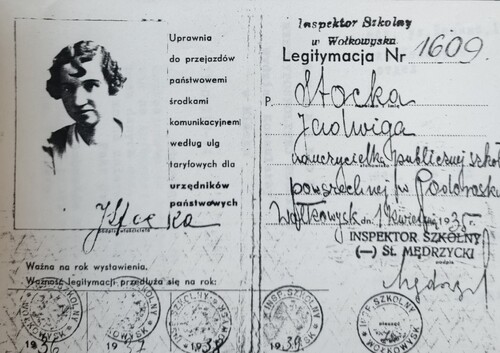 Uprawnia
do przejazdów
państwowemi
środkami
komunikacyjnemi
według ulg
taryfowych dla
urzędników
państwowych
JStocka
podpis właściciela
Ważna na rok wystawienia.
Ważność legitymacji przedłuża się na rok:
1936 1937 1938 1939
INSP. SZKOLNY WOŁKOWYSK
Inspektor Szkolny
w Wołkowysku
Legitymacja Nr 1609.
P. Stocka
Jadwiga
nauczycielka publicznej szkoły
powszechnej w
Wołkowysk dn. 1 1935 r.
INSPEKTOR SZKOLNY
(—) St. MĘDRZYCKI
podpis
INSP. SZKOLNY WOŁKOWYSK